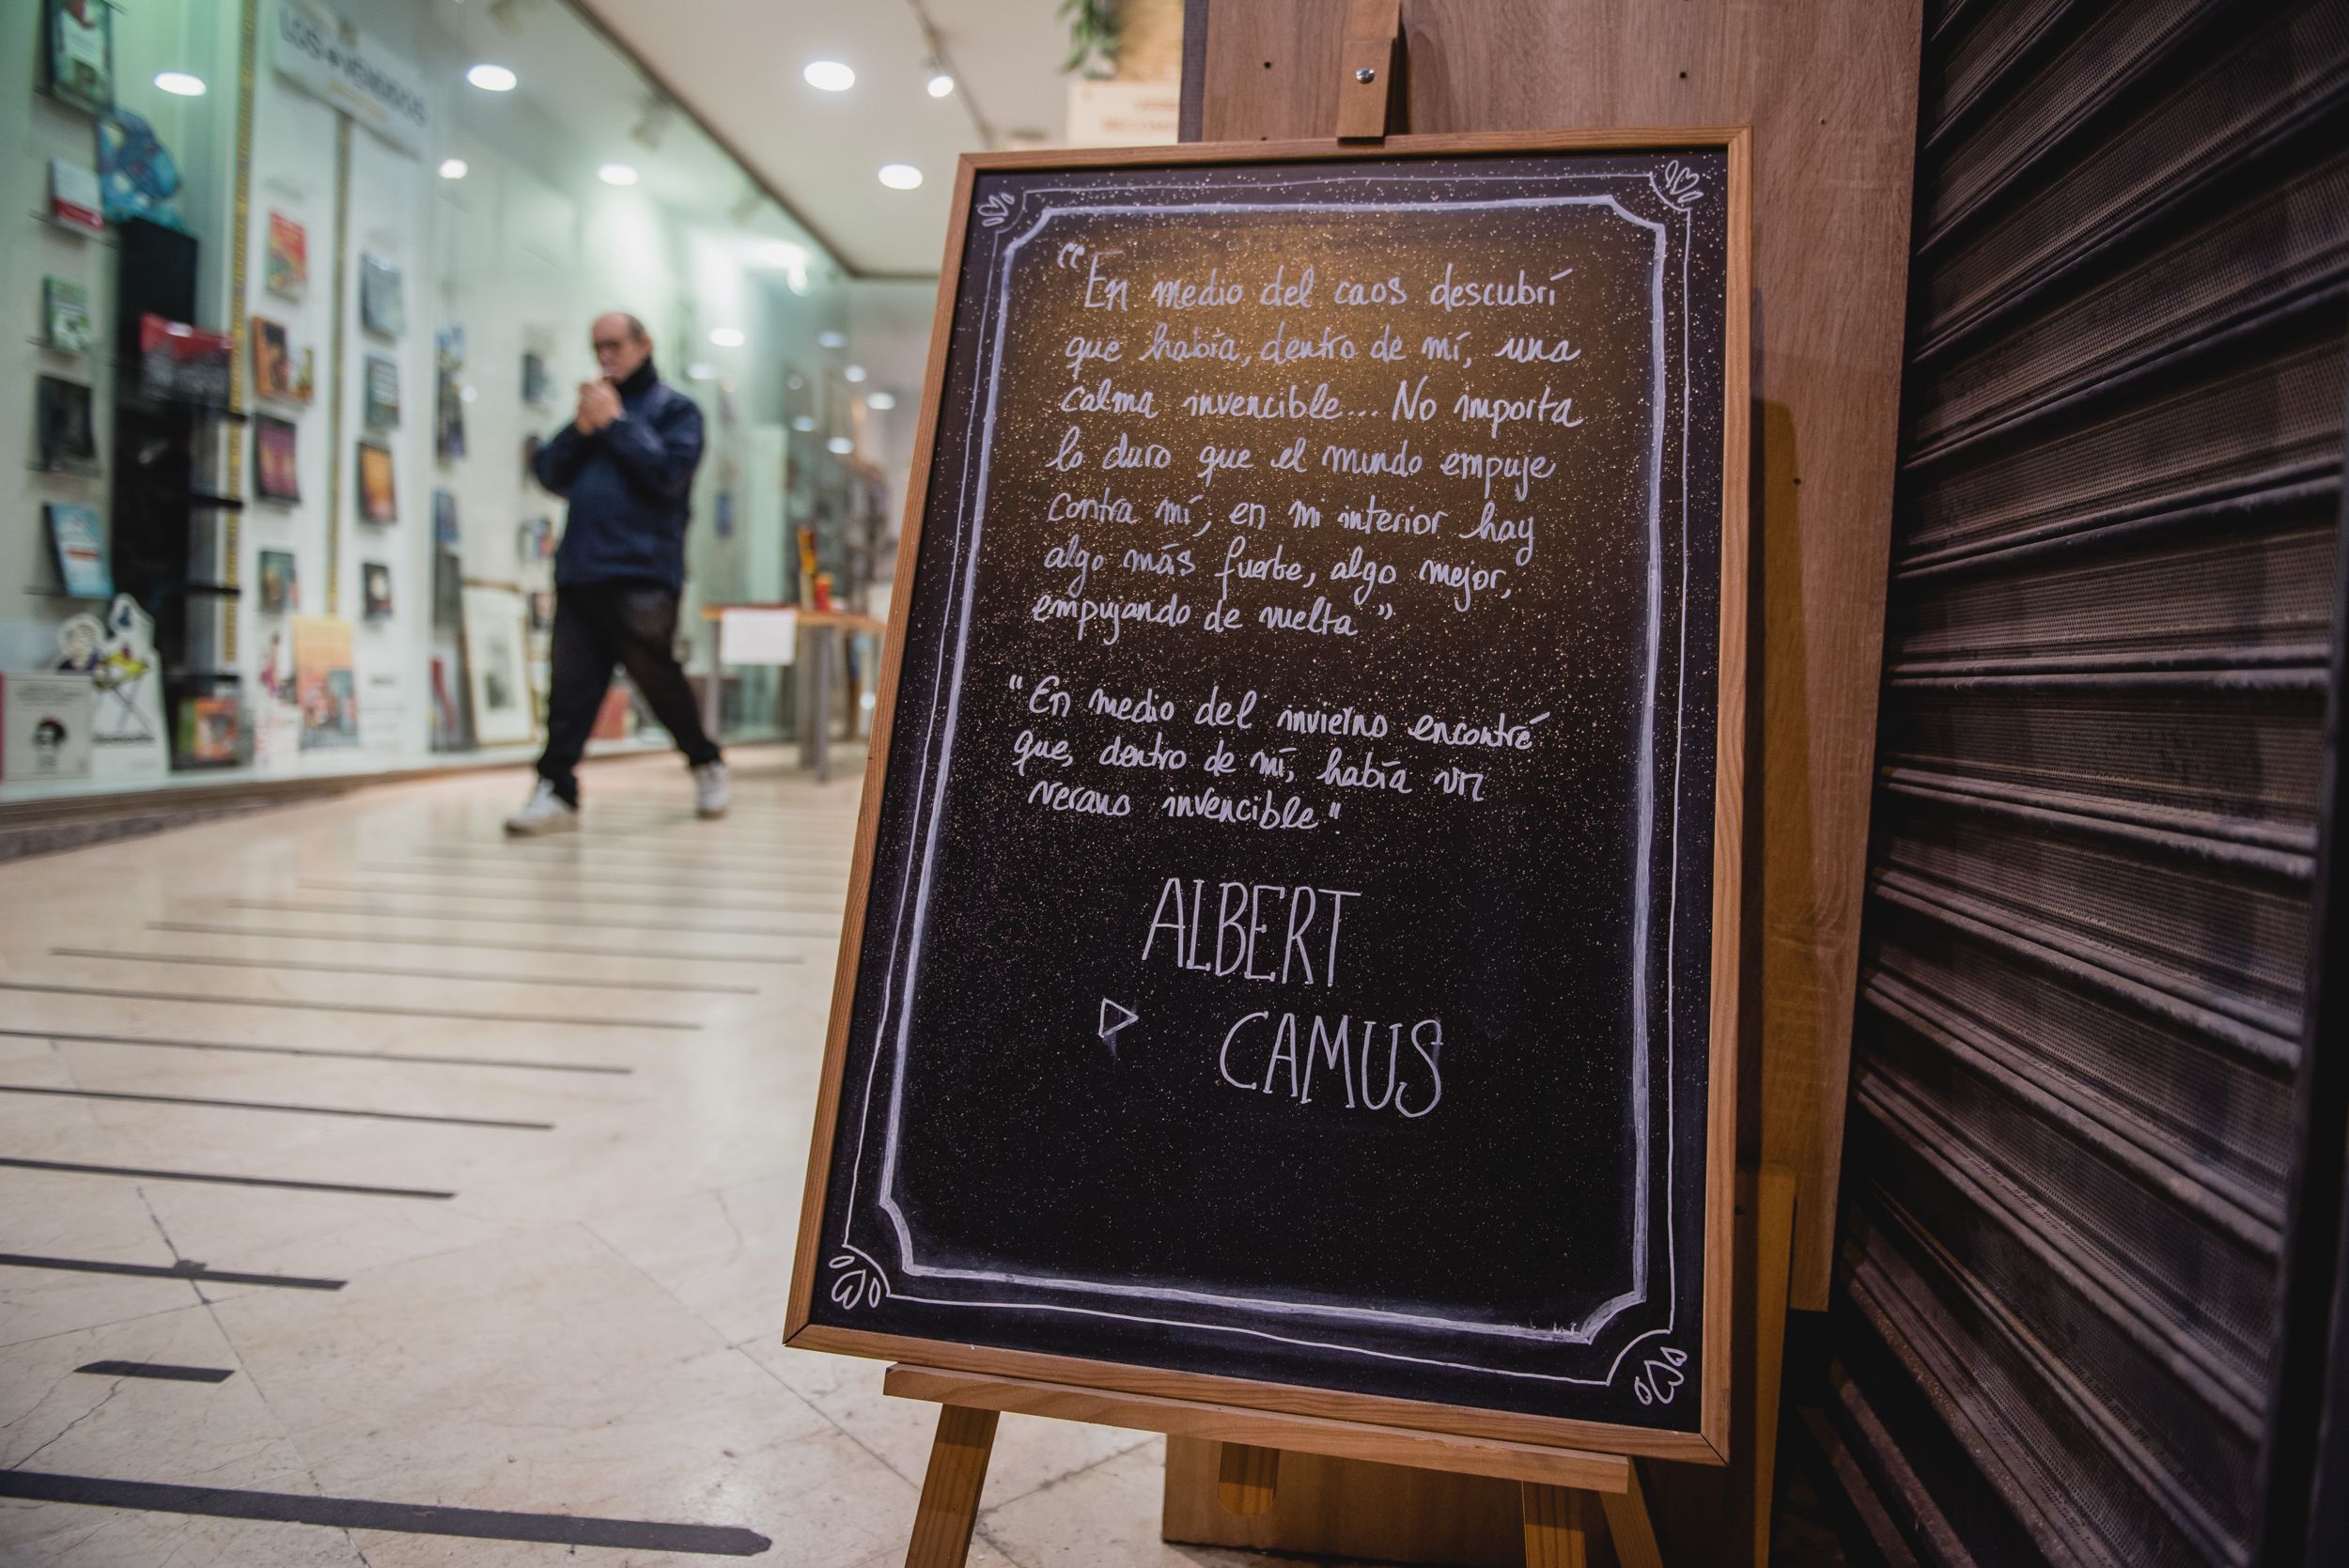 “En medio del caos descubrí
que había, dentro de mí, una
calma invencible... No importa
lo duro que el mundo empuje
contra mí, en mi interior hay
algo más fuerte, algo mejor,
empujando de vuelta”
"En medio del invierno encontré
que, dentro de mí, había un
verano invencible"
ALBERT
CAMUS